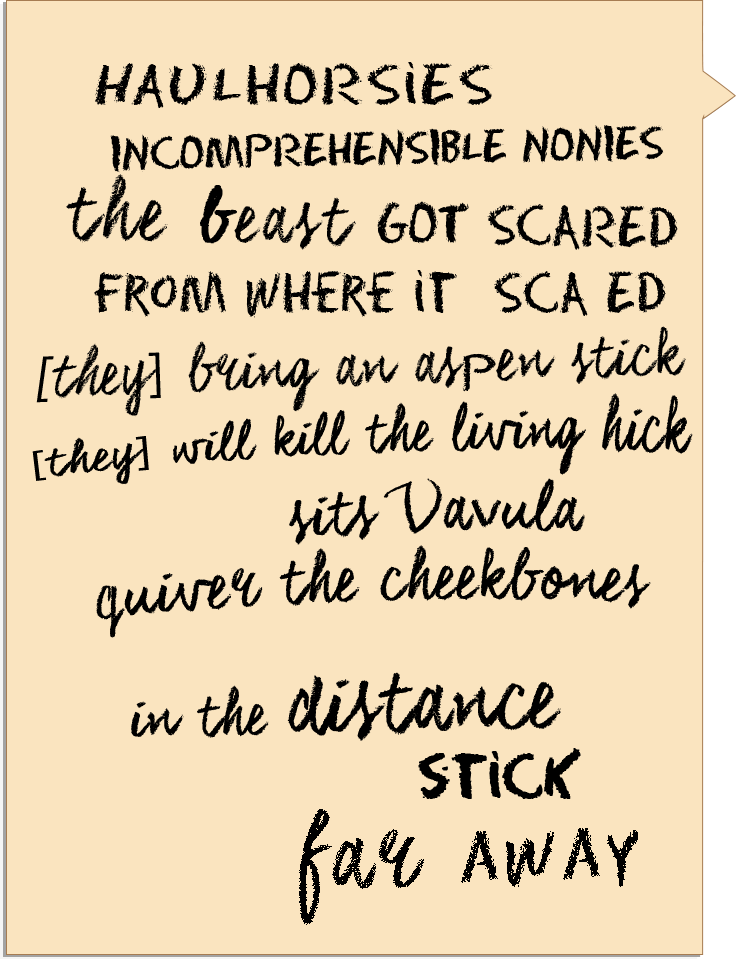 HAULHORSiES
INCOMPREHENSIBLE NONIES
the beast GOT SCARED
FROM WHERE iT SCA ED
[they] bring an aspen stick
[they] will kill the living hick
sits Vavula
quiver the cheekbones
in the distance
STiCK
far AWAY